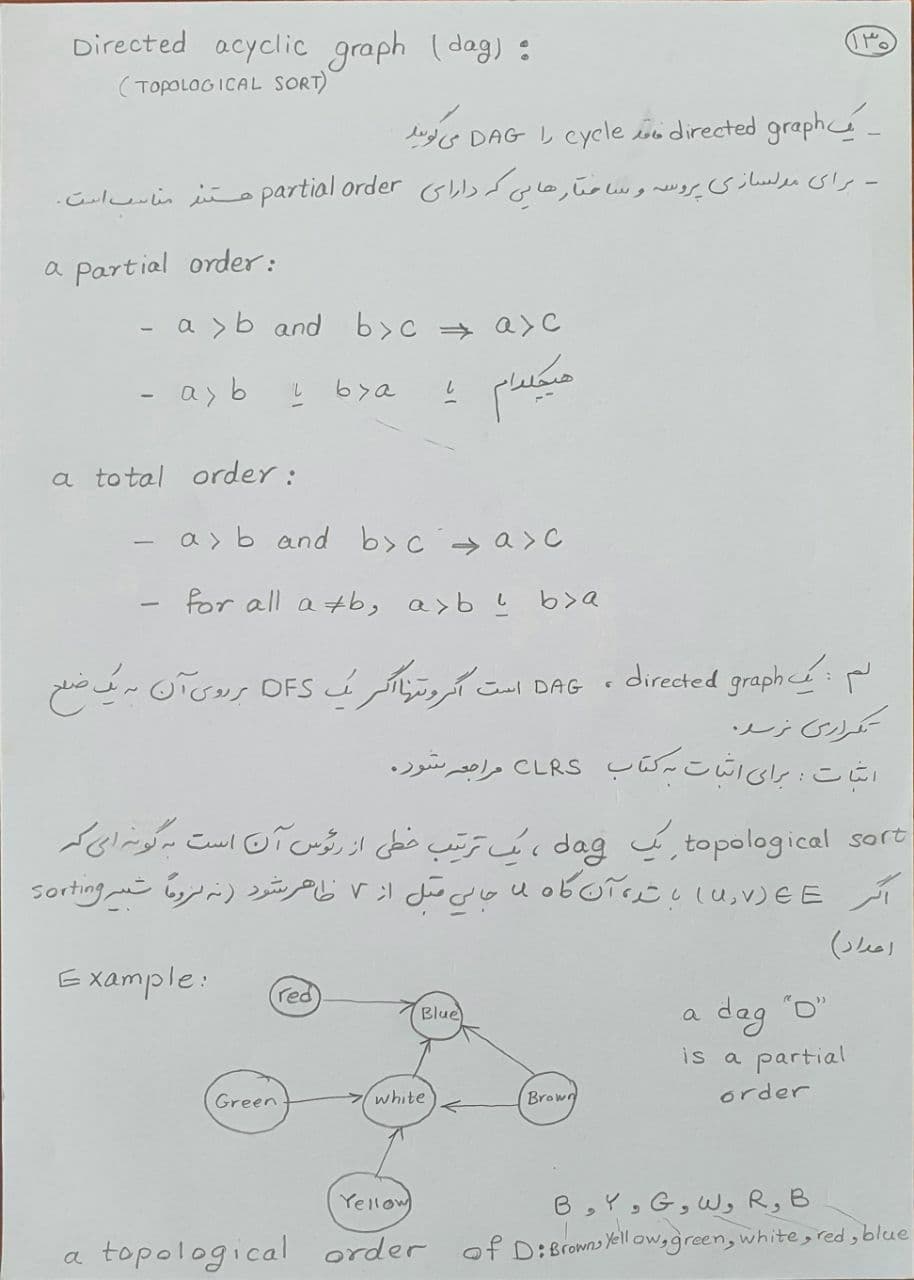 Directed acyclic graph (dag) :
۱۳۰
(TOPOLOGICAL SORT)
- یک directed graph فاقد cycle را DAG می‌گویند
- برای مدلسازی پروسه و ساختارهایی که دارای partial order هستند مناسب است.
a partial order:
- a > b and b > c ⇒ a > c
- a > b یا b > a یا هیچکدام
a total order:
- a > b and b > c ⇒ a > c
- for all a ≠ b, a > b یا b > a
لم : یک directed graph ، DAG است اگر و تنها اگر یک DFS بر روی آن به یک ضلع
تکراری نرسد.
اثبات : برای اثبات به کتاب CLRS مراجعه شود.
topological sort یک dag ، یک ترتیب خطی از رئوس آن است به گونه ای که
اگر (u,v) ∈ E باشد، آن گاه u جایی قبل از v ظاهر شود (نه لزوماً شبیه sorting
اعداد)
Example:
red
Blue
a dag "D"
is a partial
order
Green
white
Brown
Yellow
B, Y, G, W, R, B
a topological order of D: Brown, Yellow, green, white, red, blue